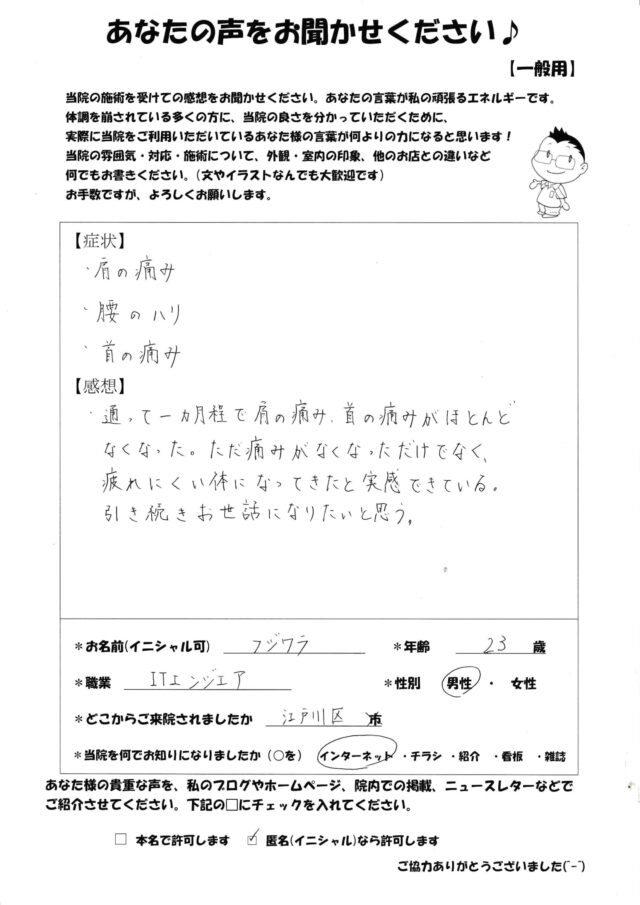 あなたの声をお聞かせください♪
【一般用】
当院の施術を受けての感想をお聞かせください。あなたの言葉が私の頑張るエネルギーです。
体調を崩されている多くの方に、当院の良さを分かっていただくために、
実際に当院をご利用いただいているあなた様の言葉が何よりの力になると思います！
当院の雰囲気・対応・施術について、外観・室内の印象、他のお店との違いなど
何でもお書きください。(文やイラストなんでも大歓迎です)
お手数ですが、よろしくお願いします。
【症状】
・肩の痛み
・腰のハリ
・首の痛み
【感想】
・通って一カ月程で肩の痛み、首の痛みがほとんど
なくなった。ただ痛みがなくなっただけでなく、
疲れにくい体になってきたと実感できている。
引き続きお世話になりたいと思う。
＊お名前(イニシャル可) フジワラ ＊年齢 23 歳
＊職業 ITエンジェア ＊性別 男性 ・ 女性
＊どこからご来院されましたか 江戸川区 市
＊当院を何でお知りになりましたか（○を） インターネット ・チラシ ・紹介 ・看板 ・雑誌
あなた様の貴重な声を、私のブログやホームページ、院内での掲載、ニュースレターなどで
ご紹介させてください。下記の□にチェックを入れてください。
□ 本名で許可します ☑ 匿名(イニシャル)なら許可します
ご協力ありがとうございました(^-^)